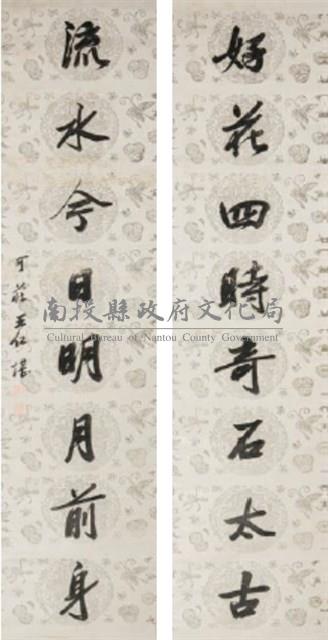 好花四時奇石太古
流水今日明月前身
可莊王仁堪
南投縣政府文化局
Cultural Bureau of Nantou County Government